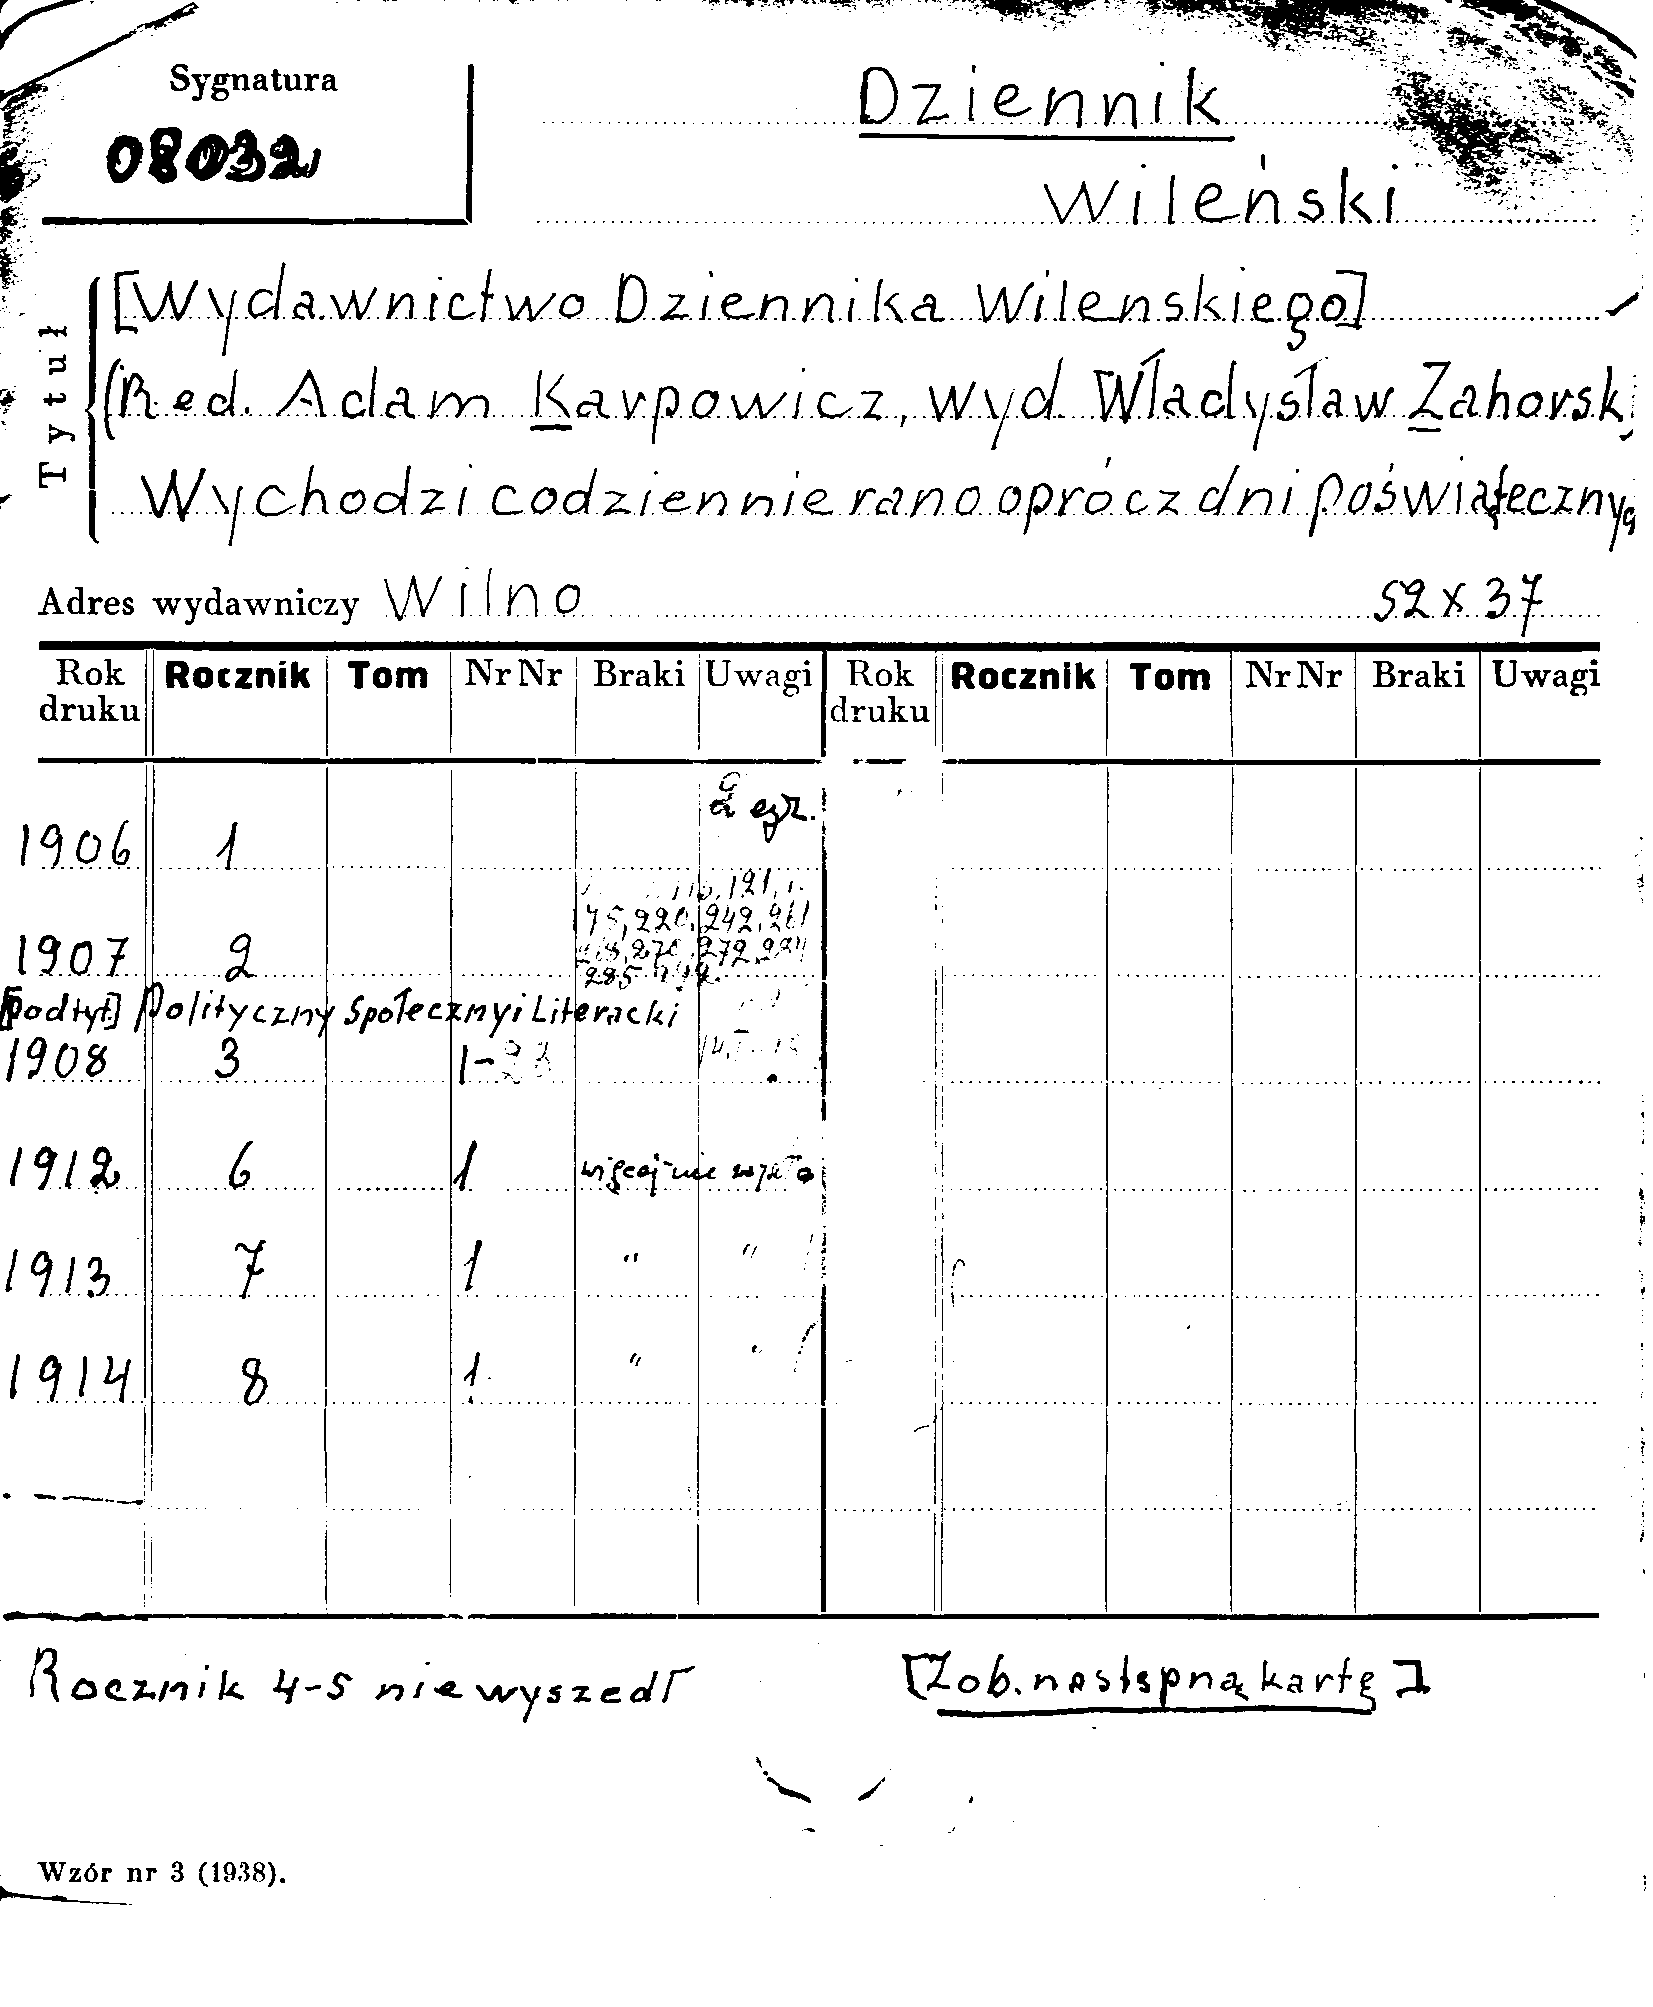 Sygnatura
08032
Dziennik
Wileński
Tytuł
[Wydawnictwo Dziennika Wilenskiego]
(Red. Adam Karpowicz, wyd. Władysław Zahorski
Wychodzi codziennie rano oprócz dni poświątecznyc
Adres wydawniczy Wilno 52 x 37
Rok druku Rocznik Tom Nr Nr Braki Uwagi Rok druku Rocznik Tom Nr Nr Braki Uwagi
2 egz.
1906 1
121,
75,220,242,261
270,272,284
1907 2 285
[podtyt] Polityczny Społeczny i Literacki
1908 3 1-
1912 6 1 więcej nie wyszło
1913 7 1 " "
1914 8 1 " "
Rocznik 4-5 nie wyszedł [Zob. następną kartę]
Wzór nr 3 (1938).